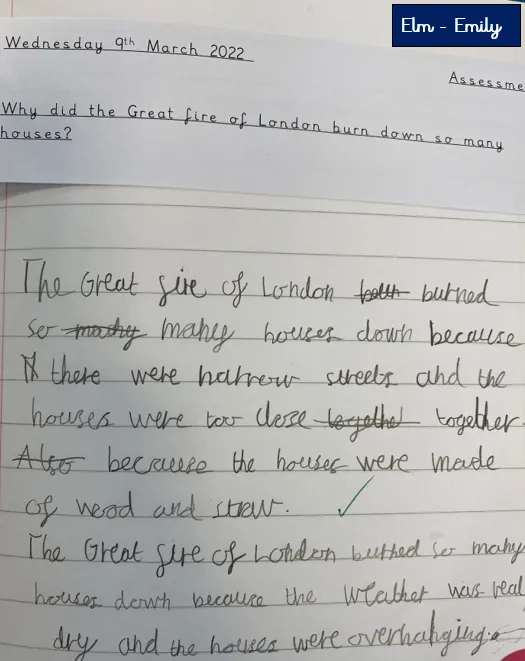 Elm - Emily
Wednesday 9th March 2022
Assessme
Why did the Great fire of London burn down so many
houses?
The Great fire of London burned
so many houses down because
there were narrow streets and the
houses were too close together together.
Also because the houses were made
of wood and straw.
The Great fire of London burned so many
houses down because the weather was real
dry and the houses were overhanging.